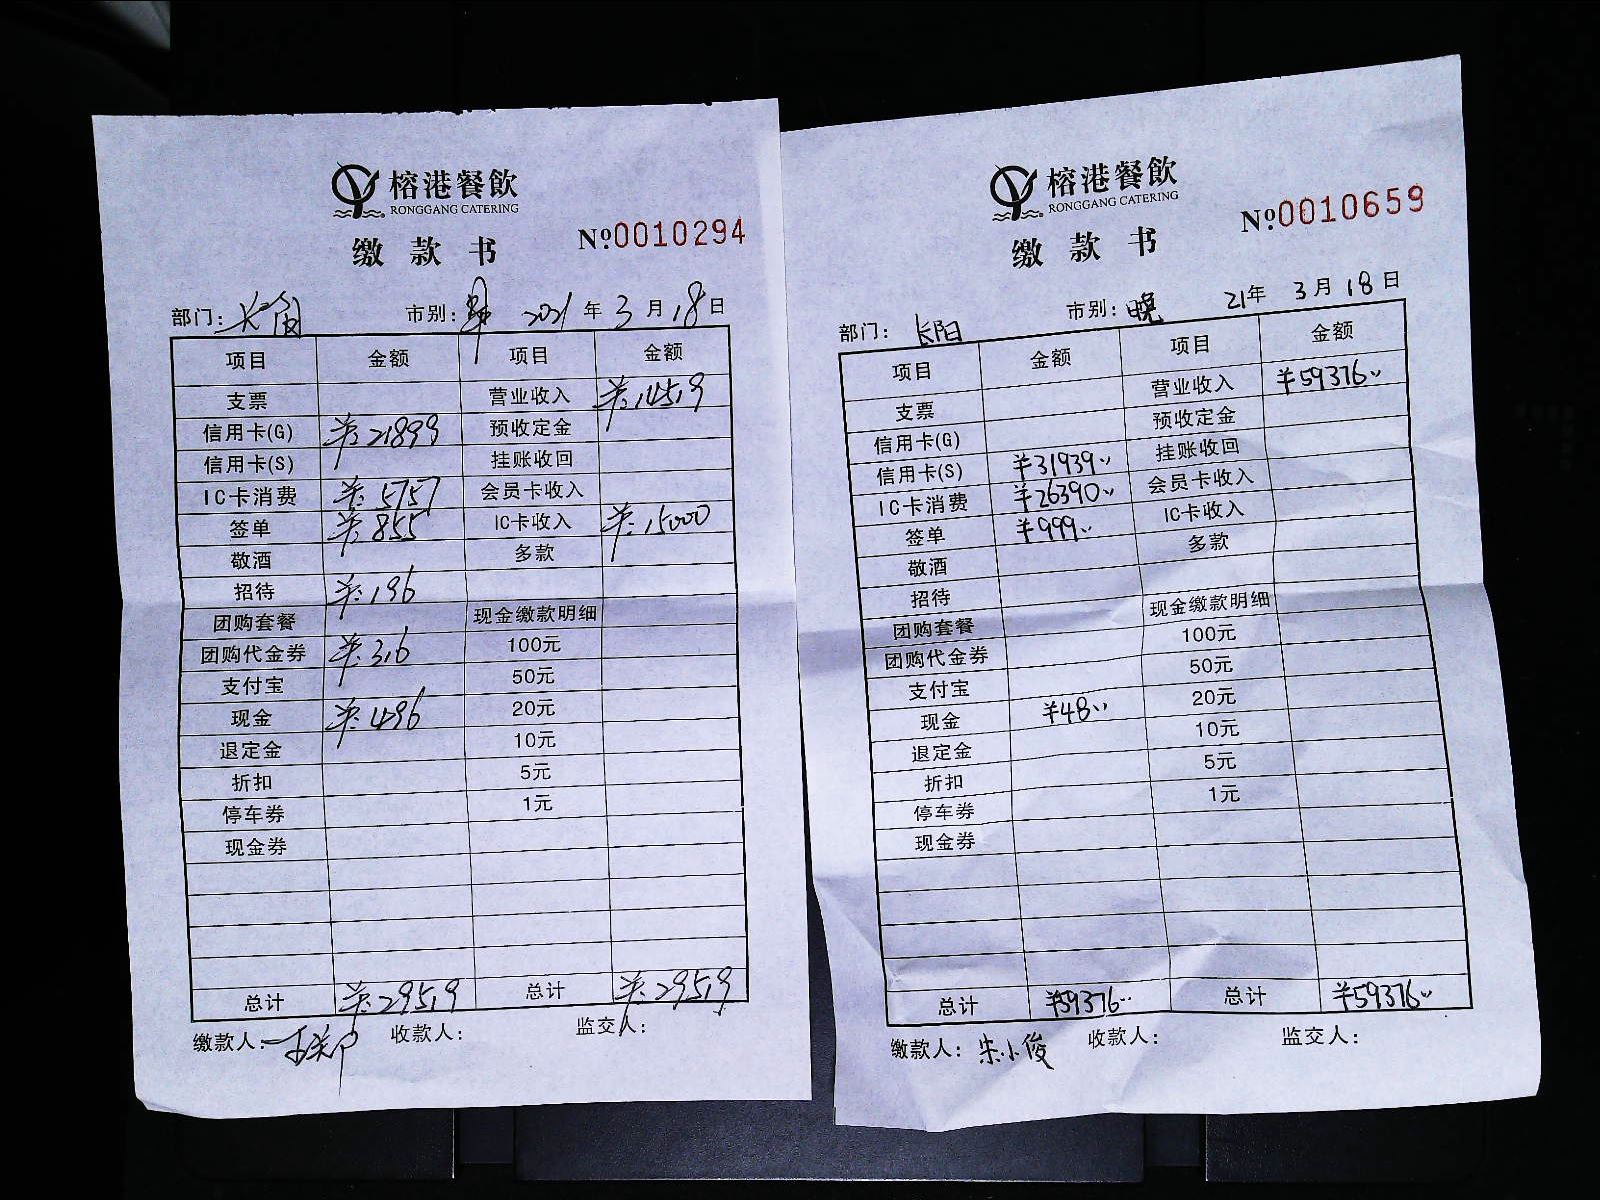 榕港餐飲
RONGGANG CATERING
缴款书 №0010294
部门: 长阳 市别: 2021年3月18日
项目 金额 项目 金额
支票 营业收入 ¥:14519
信用卡(G) ¥:21899 预收定金
信用卡(S) 挂账收回
IC卡消费 ¥:5757 会员卡收入
签单 ¥:855 IC卡收入 ¥:15000
敬酒 多款
招待 ¥:196
团购套餐 现金缴款明细
团购代金券 ¥:316 100元
支付宝 50元
现金 ¥:496 20元
退定金 10元
折扣 5元
停车券 1元
现金券
总计 ¥:29519 总计 ¥:29519
缴款人: 收款人: 监交人:
榕港餐飲
RONGGANG CATERING
缴款书 №0010659
部门: 长阳 市别: 晚 21年3月18日
项目 金额 项目 金额
支票 营业收入 ¥59376..
信用卡(G) 预收定金
信用卡(S) ¥31939.. 挂账收回
IC卡消费 ¥26390.. 会员卡收入
签单 ¥999.. IC卡收入
敬酒 多款
招待
团购套餐 现金缴款明细
团购代金券 100元
支付宝 50元
现金 ¥48.. 20元
退定金 10元
折扣 5元
停车券 1元
现金券
总计 ¥59376.. 总计 ¥59376..
缴款人: 朱小俊 收款人: 监交人: